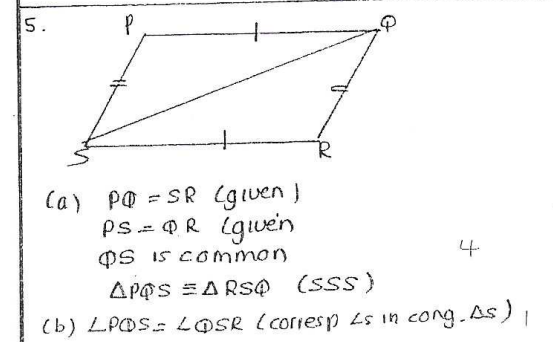 5.
P Q
S R
(a) PQ = SR (given)
PS = QR (given
QS is common
4
ΔPQS ≡ Δ RSQ (SSS)
(b) ∠PQS = ∠QSR (corresp ∠s in cong. Δs) 1